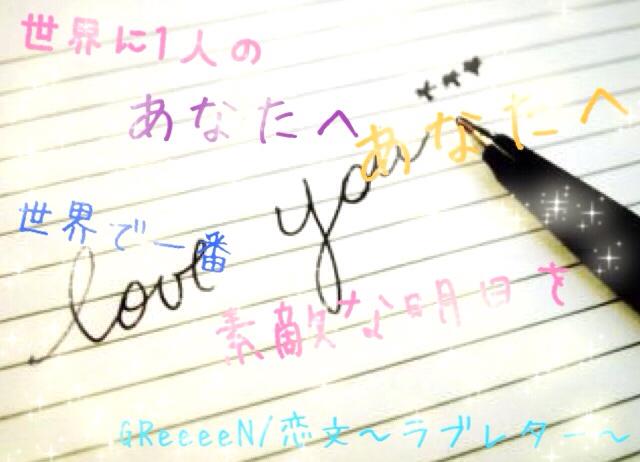 世界に1人の
あなたへ あなたへ
世界で一番
love you
素敵な明日を
GReeeeN/恋文～ラブレター～